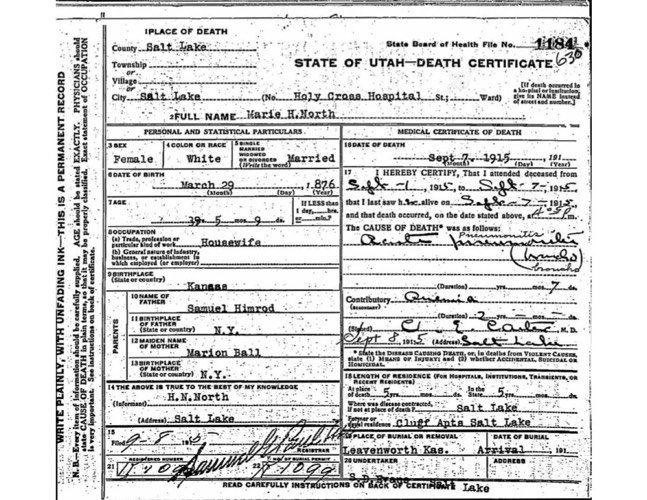 1 PLACE OF DEATH
County Salt Lake
State Board of Health File No. 1184
630
Township
or
Village
or
City Salt Lake (No. Holy Cross Hospital St.; Ward)
STATE OF UTAH—DEATH CERTIFICATE
[If death occurred in
a hospital or institution,
give its NAME instead
of street and number.]
2 FULL NAME Marie H.North
PERSONAL AND STATISTICAL PARTICULARS
3 SEX
Female
4 COLOR OR RACE
White
5 SINGLE
MARRIED
WIDOWED
OR DIVORCED
(Write the word)
Married
6 DATE OF BIRTH
March 29 1,876
(Month) (Day) (Year)
7 AGE
39 5 mos. 9 ds.
If LESS than
1 day,....hrs.
or....min.?
8 OCCUPATION
(a) Trade, profession or
particular kind of work Housewife
(b) General nature of industry,
business, or establishment in
which employed (or employer)
9 BIRTHPLACE
(State or country)
Kansas
PARENTS
10 NAME OF
FATHER
Samuel Himrod
11 BIRTHPLACE
OF FATHER
(State or country)
N.Y.
12 MAIDEN NAME
OF MOTHER
Marion Ball
13 BIRTHPLACE
OF MOTHER
(State or country)
N.Y.
14 THE ABOVE IS TRUE TO THE BEST OF MY KNOWLEDGE
(Informant) H.N.North
(Address) Salt Lake
15
Filed 9-8 1915
REGISTRAR
21 REGISTERED NUMBER
22 NO. OF BURIAL PERMIT
1099
MEDICAL CERTIFICATE OF DEATH
16 DATE OF DEATH
Sept 7, 1915 ,191
(Month) (Day) (Year)
17 I HEREBY CERTIFY, That I attended deceased from
Sept-1, 1915, to Sept-7-, 1915,
that I last saw h er alive on Sept-7-, 1915,
and that death occurred, on the date stated above, at
The CAUSE OF DEATH* was as follows:
Pneumonitis
(Duration) yrs. mos. 7 ds.
Contributory Anemia
(SECONDARY)
(Duration) 2 yrs. mos. ds.
(Signed) C. E. M. D.
Sept 8 1915 (Address) Salt Lake
* State the DISEASE CAUSING DEATH, or, in deaths from VIOLENT CAUSES,
state (1) MEANS OF INJURY; and (2) whether ACCIDENTAL, SUICIDAL or
HOMICIDAL.
18 LENGTH OF RESIDENCE (FOR HOSPITALS, INSTITUTIONS, TRANSIENTS, OR
RECENT RESIDENTS)
At place
of death 5 yrs. mos. ds.
In the
State 5 yrs. mos. ds.
Where was disease contracted,
if not at place of death? Salt Lake
Former or
usual residence Cluff Apts Salt Lake
19 PLACE OF BURIAL OR REMOVAL
Leavenworth Kas.
DATE OF BURIAL
Arrival, 191
20 UNDERTAKER
ADDRESS
Salt Lake
READ CAREFULLY INSTRUCTIONS ON BACK OF CERTIFICATE
WRITE PLAINLY, WITH UNFADING INK—THIS IS A PERMANENT RECORD
N. B.—Every item of information should be carefully supplied. AGE should be stated EXACTLY. PHYSICIANS should
state CAUSE OF DEATH in plain terms, so that it may be properly classified. Exact statement of OCCUPATION
is very important. See instructions on back of certificate.